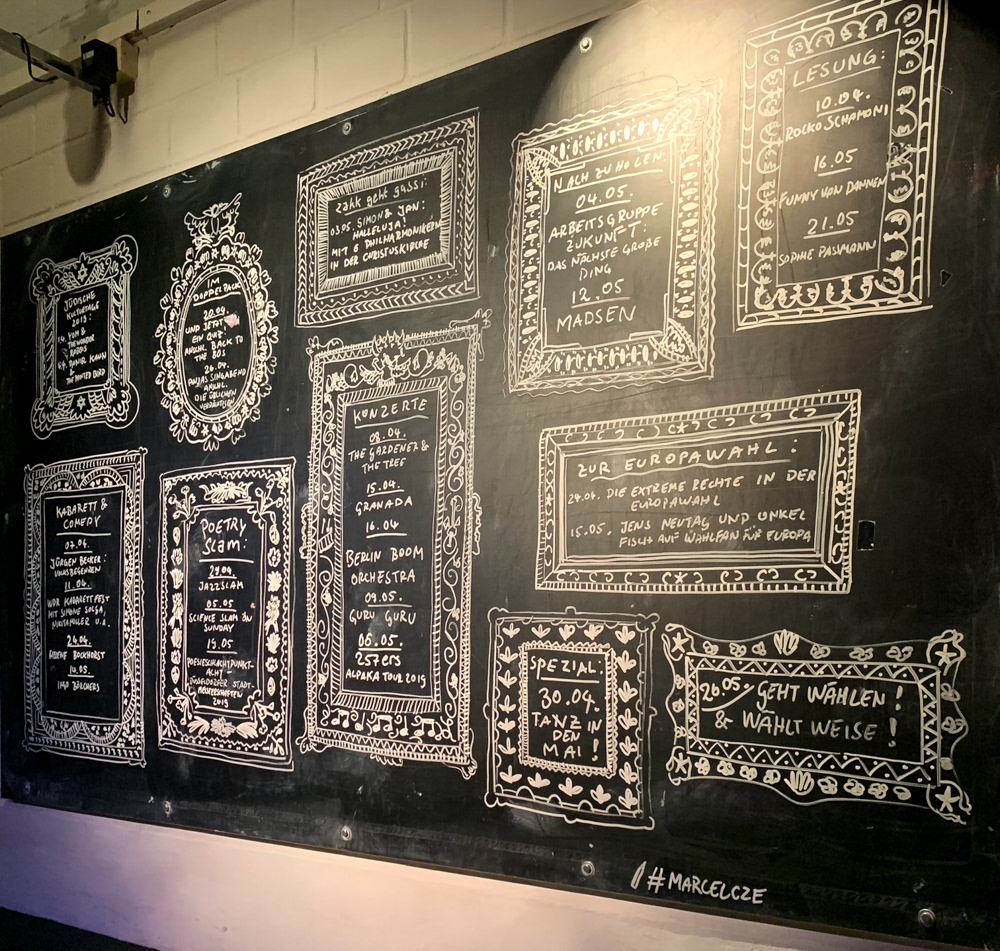 JÜDISCHE
KULTURTAGE
2019:
THE PAINTED BIRD
IM
DOPPELPACK
20.04.
UND JETZT
EIN QUIZ
ANSCHL. BACK TO
THE 80S
26.04.
ANSCHL.
DIE ÜBLICHEN
VERDÄCHTIGEN
zakk geht gassi:
03.05. SIMON & JAN:
HALLELUJA!
MIT 6 PHILHARMONIKERN
IN DER CHRISTUSKIRCHE
NACHZUHOLEN:
04.05.
ARBEITSGRUPPE
ZUKUNFT:
DAS NÄCHSTE GROßE
DING
12.05
MADSEN
LESUNG:
10.04.
ROCKO SCHAMONI
16.05
FUNNY VAN DANNEN
21.05
SOPHIE PASSMANN
KABARETT &
COMEDY
07.04.
JÜRGEN BECKER:
VOLKSBEGEHREN
11.04.
WDR KABARETTFEST
MIT SIMONE SOLGA,
U.A.
24.04.
14.05.
INGO BÖRCHERS
POETRY
SLAM:
29.04.
JAZZSLAM
05.05
SCIENCE SLAM ON
SUNDAY
19.05
POESIESCHLACHTPUNKT-
ACHT
DÜSSELDORFER STADT-
MEISTERSCHAFTEN
2019
KONZERTE
08.04.
THE GARDENER &
THE TREE
15.04.
GRANADA
16.04
BERLIN BOOM
ORCHESTRA
09.05.
GURU GURU
06.05.
257ERS
ALPAKA TOUR 2019
ZUR EUROPAWAHL:
24.04. DIE EXTREME RECHTE IN DER
EUROPAWAHL
15.05. JENS NEUTAG UND ONKEL
FISCH AUF WAHLFANG FÜR EUROPA
SPEZIAL:
30.04.
TANZ IN
DEN
MAI!
26.05. GEHT WÄHLEN!
& WÄHLT WEISE!
#MARCELCZE